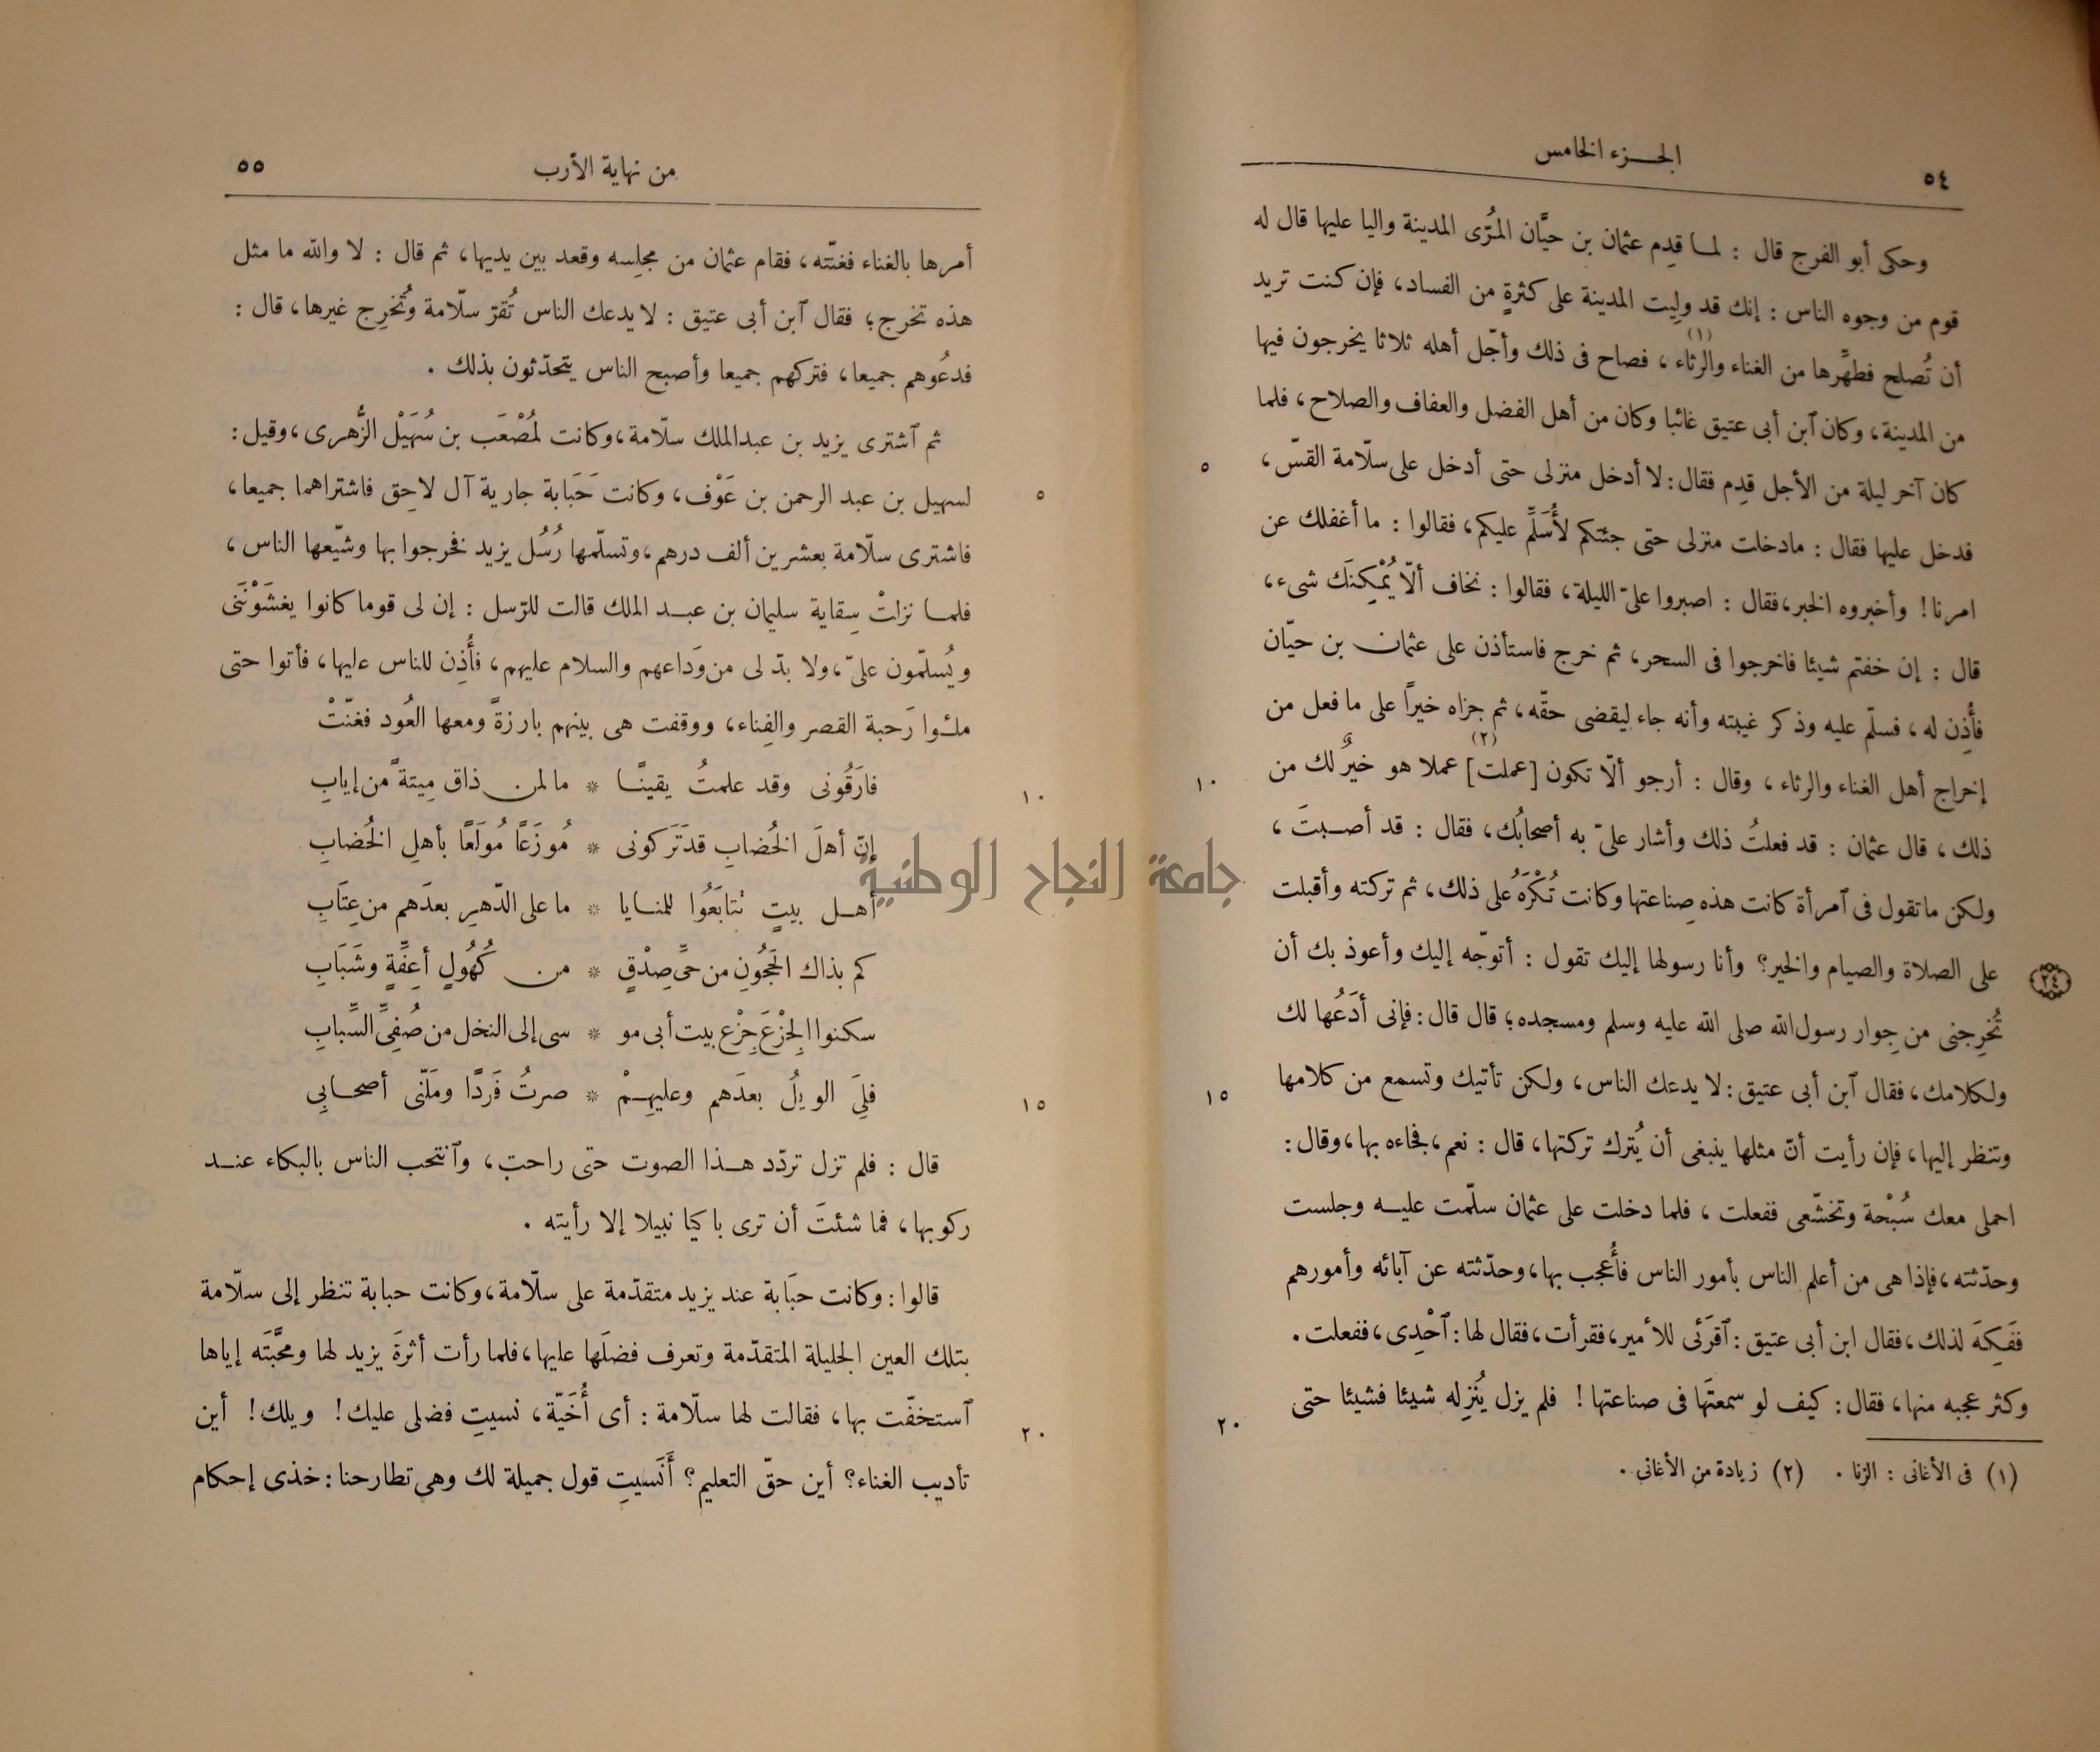 ٥٤
الجزء الخامس
وحكى أبو الفرج قال : لما قدِم عثمان بن حيَّان المُرّى المدينة واليا عليها قال له
قوم من وجوه الناس : إنك قد ولِيت المدينة على كثرةٍ من الفساد، فإن كنت تريد
أن تُصلح فطهِّرها من الغناء والرثاء (١)، فصاح فى ذلك وأجّل أهله ثلاثا يخرجون فيها
من المدينة، وكان آبن أبى عتيق غائبا وكان من أهل الفضل والعفاف والصلاح، فلما
كان آخر ليلة من الأجل قدِم فقال : لا أدخل منزلى حتى أدخل على سلّامة القسّ، ٥
فدخل عليها فقال : مادخلت منزلى حتى جئتكم لأُسَلِّم عليكم، فقالوا : ما أغفلك عن
امرنا! وأخبروه الخبر، فقال : اصبروا علىّ الليلة، فقالوا : نخاف ألّا يُمْكِنَك شىء،
قال : إن خفتم شيئا فاخرجوا فى السحر، ثم خرج فاستأذن على عثمان بن حيّان
فأُذِن له، فسلّم عليه وذكر غيبته وأنه جاء ليقضى حقّه، ثم جزاه خيراً على ما فعل من
إخراج أهل الغناء والرثاء، وقال : أرجو ألّا تكون [عملت] (٢) عملا هو خيرٌ لك من ١٠
ذلك، قال عثمان : قد فعلتُ ذلك وأشار علىّ به أصحابُك، فقال : قد أصبتَ،
ولكن ماتقول فى آمرأة كانت هذه صِناعتها وكانت تُكْرَهُ على ذلك، ثم تركته وأقبلت
على الصلاة والصيام والخير؟ وأنا رسولها إليك تقول : أتوجّه إليك وأعوذ بك أن
٢٤
تُخرِجنى من جِوار رسول الله صلى الله عليه وسلم ومسجده؛ قال قال : فإنى أدَعُها لك
ولكلامك، فقال آبن أبى عتيق : لا يدعك الناس، ولكن تأتيك وتسمع من كلامها ١٥
وتنظر إليها، فإن رأيت أنّ مثلها ينبغى أن يُترك تركتها، قال : نعم، فجاءه بها، وقال :
احملى معك سُبْحة وتخشّعى ففعلت، فلما دخلت على عثمان سلّمت عليه وجلست
وحدّثته، فإذا هى من أعلم الناس بأمور الناس فأُعجب بها، وحدّثته عن آبائه وأمورهم
ففَكِهَ لذلك، فقال ابن أبى عتيق : آقرَئى للأمير، فقرأت، فقال لها : آحْدِى، ففعلت.
وكثر عجبه منها، فقال : كيف لو سمعتَها فى صناعتها! فلم يزل يُنزِله شيئا فشيئا حتى ٢٠
(١) فى الأغانى : الزنا. (٢) زيادة من الأغانى.
من نهاية الأرب
٥٥
أمرها بالغناء فغنّته، فقام عثمان من مجلِسه وقعد بين يديها، ثم قال : لا والله ما مثل
هذه تخرج؛ فقال آبن أبى عتيق : لا يدعك الناس تُقرّ سلّامة وتُخرِج غيرها، قال :
فدعُوهم جميعا، فتركهم جميعا وأصبح الناس يتحدّثون بذلك.
ثم آشترى يزيد بن عبد الملك سلّامة، وكانت لمُصْعَب بن سُهَيْل الزُّهرى، وقيل :
لسهيل بن عبد الرحمن بن عَوْف، وكانت حَبَابة جارية آل لاحِق فاشتراهما جميعا، ٥
فاشترى سلّامة بعشرين ألف درهم، وتسلّمها رُسُل يزيد فخرجوا بها وشيّعها الناس،
فلما نزلتْ سِقاية سليمان بن عبد الملك قالت للرّسل : إن لى قوما كانوا يغشَوْنَنى
ويُسلّمون علىّ، ولا بدّ لى من وَداعهم والسلام عليهم، فأُذِن للناس عليها، فأتوا حتى
ملئوا رَحبة القصر والفِناء، ووقفت هى بينهم بارزةً ومعها العُود فغنّتْ
فارَقُونى وقد علمتُ يقينًا * ما لمن ذاق مِيتةً من إيابِ ١٠
إنّ أهلَ الخُضابِ قد تَرَكونى * مُوزَعًا مُولَعًا بأهلِ الخُضابِ
أهل بيتٍ تَتابَعُوا للمنايا * ما على الدّهرِ بعدَهم من عِتَابِ
كم بذاك الحَجُونِ من حىِّ صِدْقٍ * من كُهُولٍ أعِفّةٍ وشَبَابِ
سكنوا الجِزْعَ جِزْع بيت أبى مو * سى إلى النخل من صُفِىِّ السِّبابِ
فلِىَ الويلُ بعدَهم وعليهِمْ * صرتُ فَردًا ومَلّنى أصحابِى ١٥
قال : فلم تزل تردّد هذا الصوت حتى راحت، وآنتحب الناس بالبكاء عند
ركوبها، فما شئتَ أن ترى باكيا نبيلا إلا رأيته.
قالوا : وكانت حبَابة عند يزيد متقدّمة على سلّامة، وكانت حبابة تنظر إلى سلّامة
بتلك العين الجليلة المتقدّمة وتعرف فضلَها عليها، فلما رأت أثرةَ يزيد لها ومحَبَّته إياها
آستخفّت بها، فقالت لها سلّامة : أى أُخَيّة، نسيتِ فضلى عليك! ويلك! أين ٢٠
تأديب الغناء؟ أين حقّ التعليم؟ أَنَسيتِ قول جميلة لك وهى تطارحنا : خذى إحكام
جامعة النجاح الوطنية